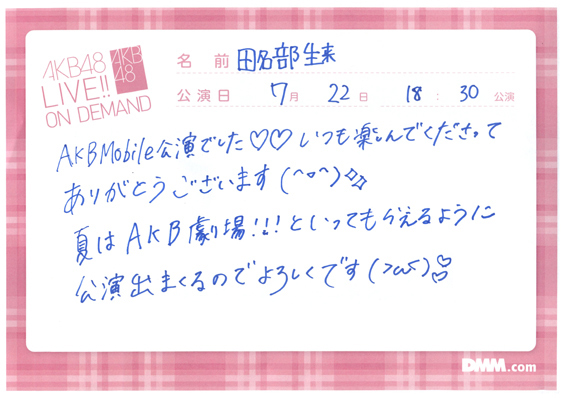 AKB48
LIVE!!
ON DEMAND
AKB
48
名 前 田名部生来
公演日 7月 22日 18:30 公演
AKBMobile公演でした♡♡いつも楽しんでくださって
ありがとうございます(^o^)✧✧
夏はAKB劇場!!!といってもらえるように
公演出まくるのでよろしくです(>ω<)♡
DMM.com